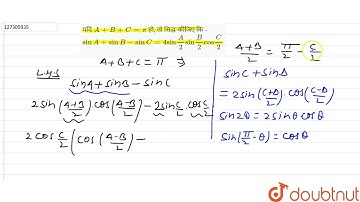 127305935
यदि A + B + C = π हो, तो सिद्ध कीजिए कि :
sin A + sin B − sin C = 4 sin A/2 sin B/2 cos C/2
A + B + C = π ⇒
L.H.S
sinA + sinB − sinC
2 sin (A+B/2) cos (A−B/2) − 2 sin C/2 . cos C/2
2 cos C/2 ( cos (A−B/2) −
A+B/2 = π/2 − C/2
sinC + sinD
= 2 sin (C+D/2) . cos (C−D/2)
sin2θ = 2 sinθ cosθ
sin(π/2 − θ) = cosθ
doubtnut